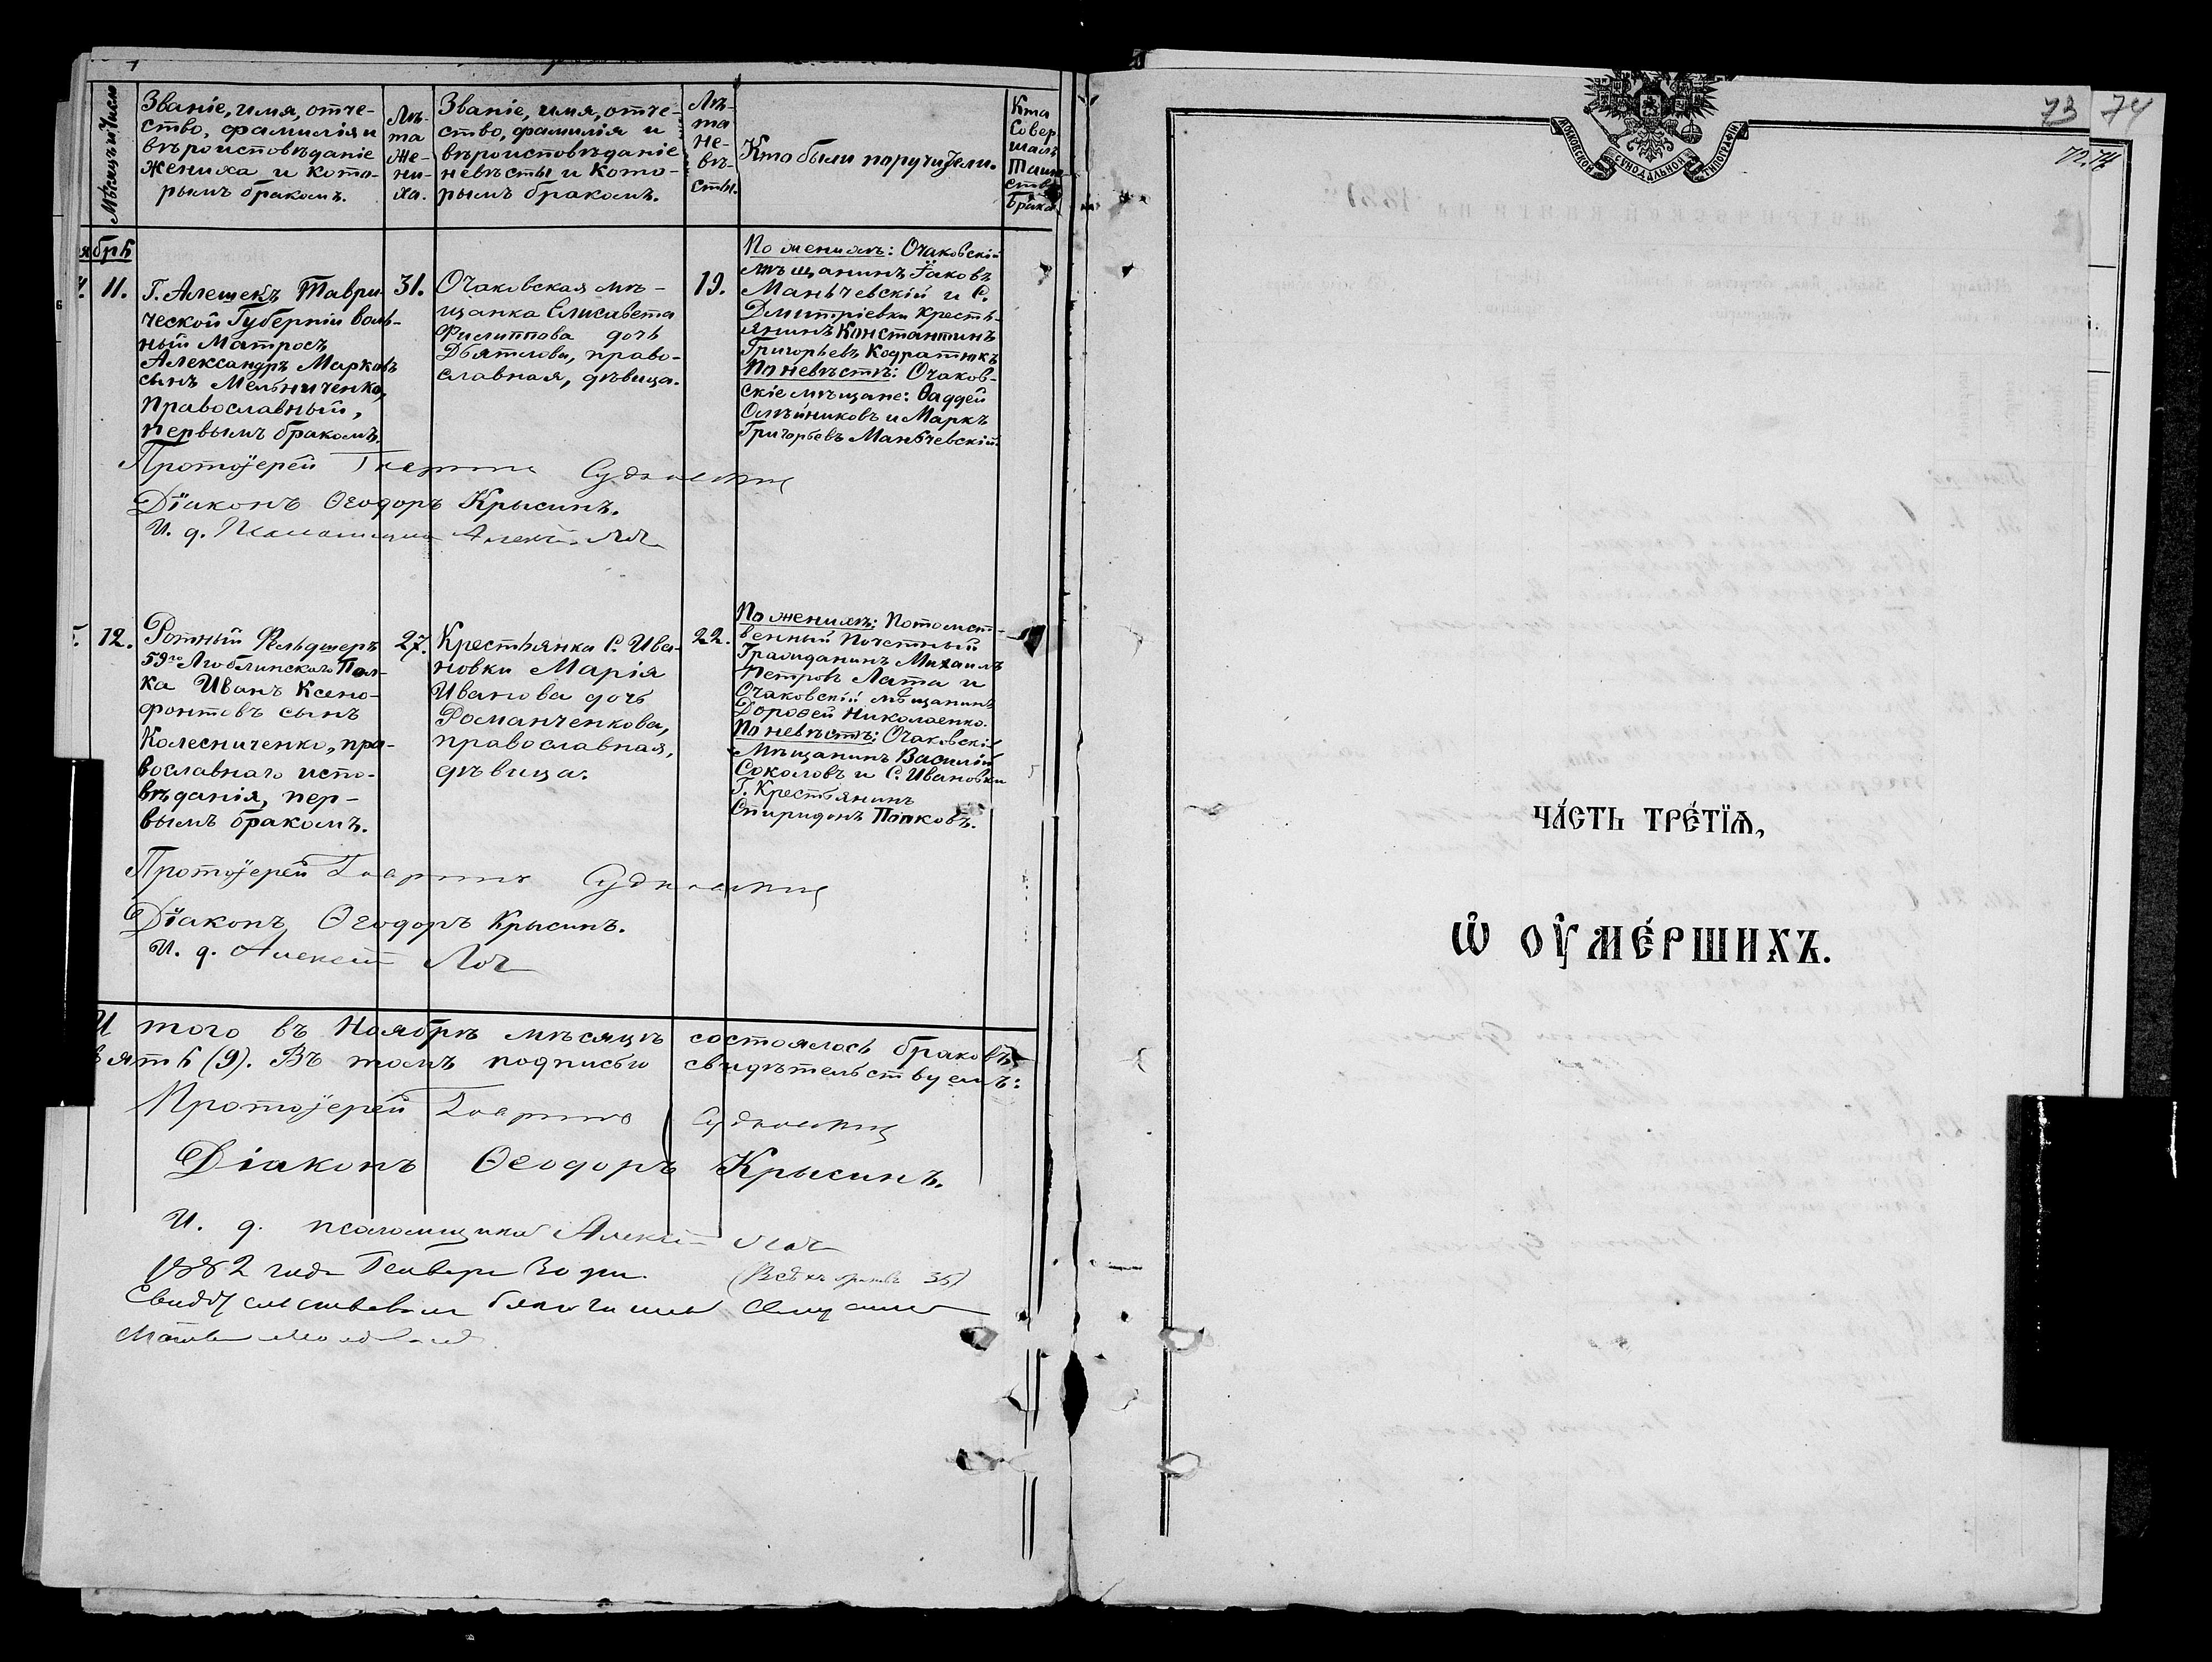 Мѣсяцъ и Число
Званіе, имя, отче-
ство, фамилія и
вѣроисповѣданіе
жениха и кото-
рымъ бракомъ.
Лѣ-
та
же-
ни-
ха.
Званіе, имя, отче-
ство, фамилія и
вѣроисповѣданіе
невѣсты и кото-
рымъ бракомъ.
Лѣ-
та
не-
вѣ-
сты.
Кто были поручители.
Кто
Совер
шалъ
Таин
ство
Брака
ябрѣ
11.
Г. Алешекъ Таври-
ческой Губерніи воль-
ный Матросъ
Александръ Марковъ
сынъ Мельниченко,
Православный,
первымъ бракомъ.
31.
Очаковская мѣ-
щанка Елисавета
Филиппова дочь
Дѣятлова, право-
славная, дѣвица.
19.
По женихѣ: Очаковскій
мѣщанинъ Іаковъ
Маньчевскій и С.
Дмитріевки кресть-
янинъ Константинъ
Григорьевъ Кодратюкъ
По невѣстѣ: Очаков-
скіе мѣщане: Ѳаддей
Олѣйниковъ и Маркъ
Григорьевъ Маньчевскій
Протоіерей Гавріилъ Судковскій
Діаконъ Ѳеодоръ Крысинъ.
И. д. Псаломщика Алексѣй
12.
Ротный Фельдшеръ
59го Люблинскаго Пол-
ка Иванъ Ксено-
фонтовъ сынъ
Колесниченко, пра-
вославнаго испо-
вѣданія, пер-
вымъ бракомъ.
27.
Крестьянка С. Ива-
новки Марія
Иванова дочь
Романченкова,
православная,
дѣвица.
22.
По женихѣ: Потомст-
венный Почетный
Гражданинъ Михаилъ
Петровъ Лата и
Очаковскій мѣщанинъ
Дороѳей Николаенко.
По невѣстѣ: Очаковскій
Мѣщанинъ Василій
Соколовъ и С. Ивановки
Г. Крестьянинъ
Спиридонъ Попковъ.
Протоіерей Гавріилъ Судковскій
Діаконъ Ѳеодоръ Крысинъ.
И. д. Алексѣй
И того въ Ноябрѣ мѣсяцѣ состоялось браковъ
вять (9). Въ томъ подписью свидѣтельствуемъ:
Протоіерей Гавріилъ Судковскій
Діаконъ Ѳеодоръ Крысинъ.
И. д. псаломщика Алексѣй
1882 года Генваря 30 дня.
(Всѣхъ браковъ 36)
73 74
МОСКОВСКОЙ СѴНОДАЛЬНОЙ ТИПОГРАФІИ.
ЧА́СТЬ ТРЕ́ТЇѦ,
Ѡ҆ ОУ҆МЕ́РШИХЪ.